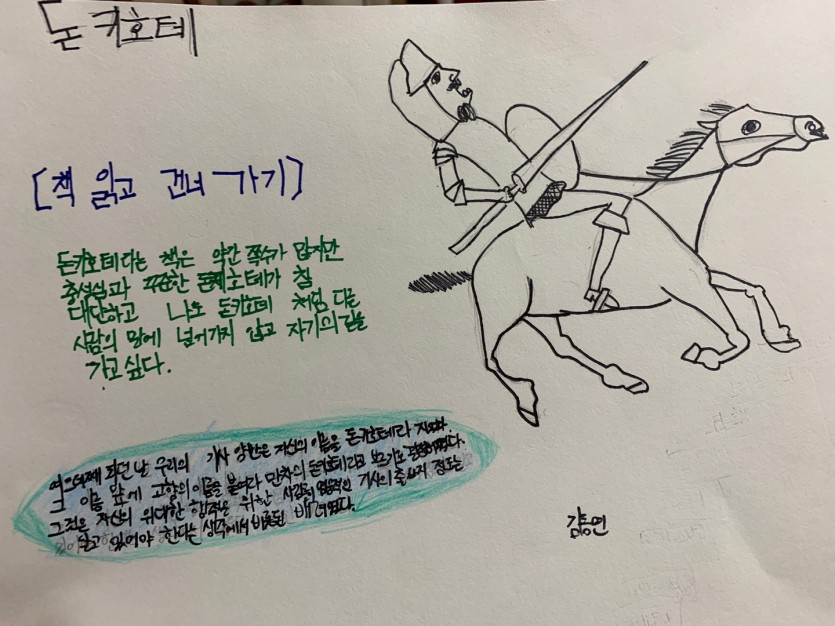 돈키호테
[책 읽고 건너가기]
돈키호테라는 책은 약간 쪽수가 많지만
충성심과 꾸준한 돈키호테가 참
대단하고 나도 돈키호테 처럼 다른
사람의 말에 넘어가지 않고 자기의 길을
가고 싶다.
여드레째 되던 날 우리의 기사 양반은 자신의 이름을 돈키호테라 지었다.
그 이름 앞에 고향의 이름을 붙여라 만차의 돈키호테라고 부르기로
그것은 자신의 위대한 행적을 위한 기사의 출생지 정도는
알고 있어야 한다는 생각에서 비롯된 배려였다.